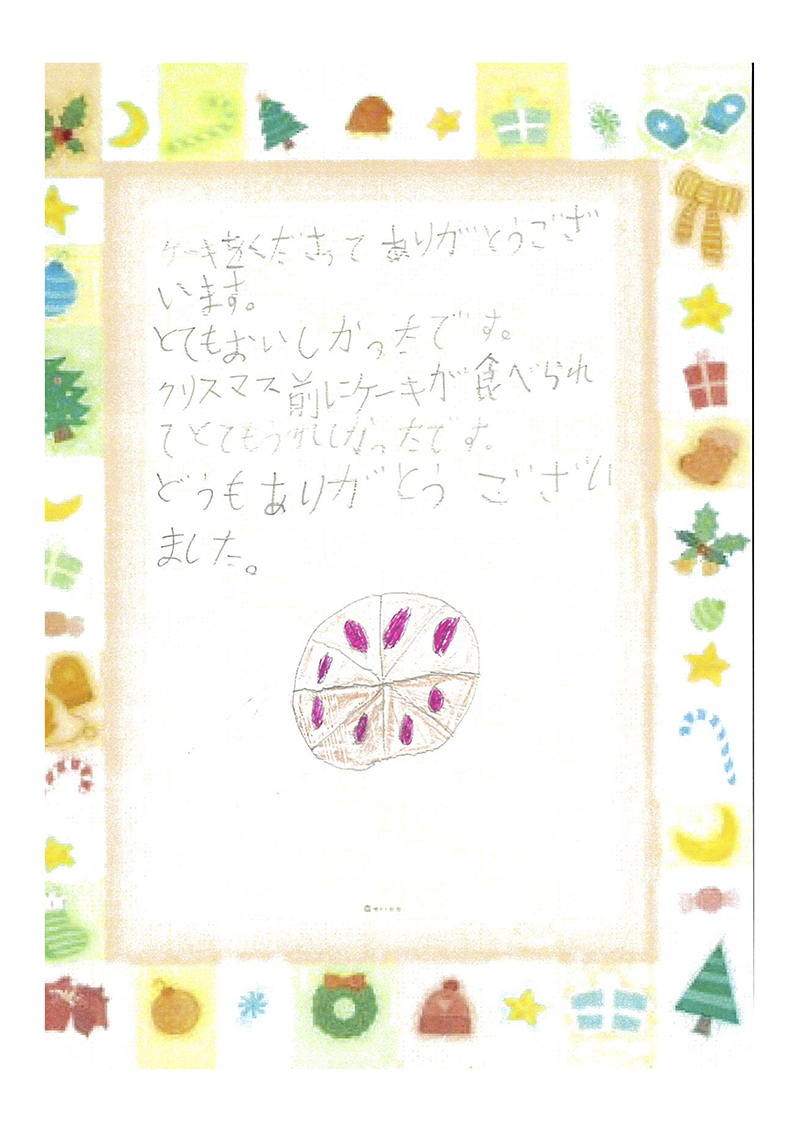 ケーキをくださって ありがとうござ
います。
とてもおいしかったです。
クリスマス前にケーキが食べられ
てとてもうれしかったです。
どうもありがとう ござい
ました。